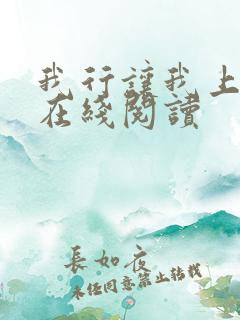 我行讓我上
在綫閱讀
長如夜
未经同意禁止转载